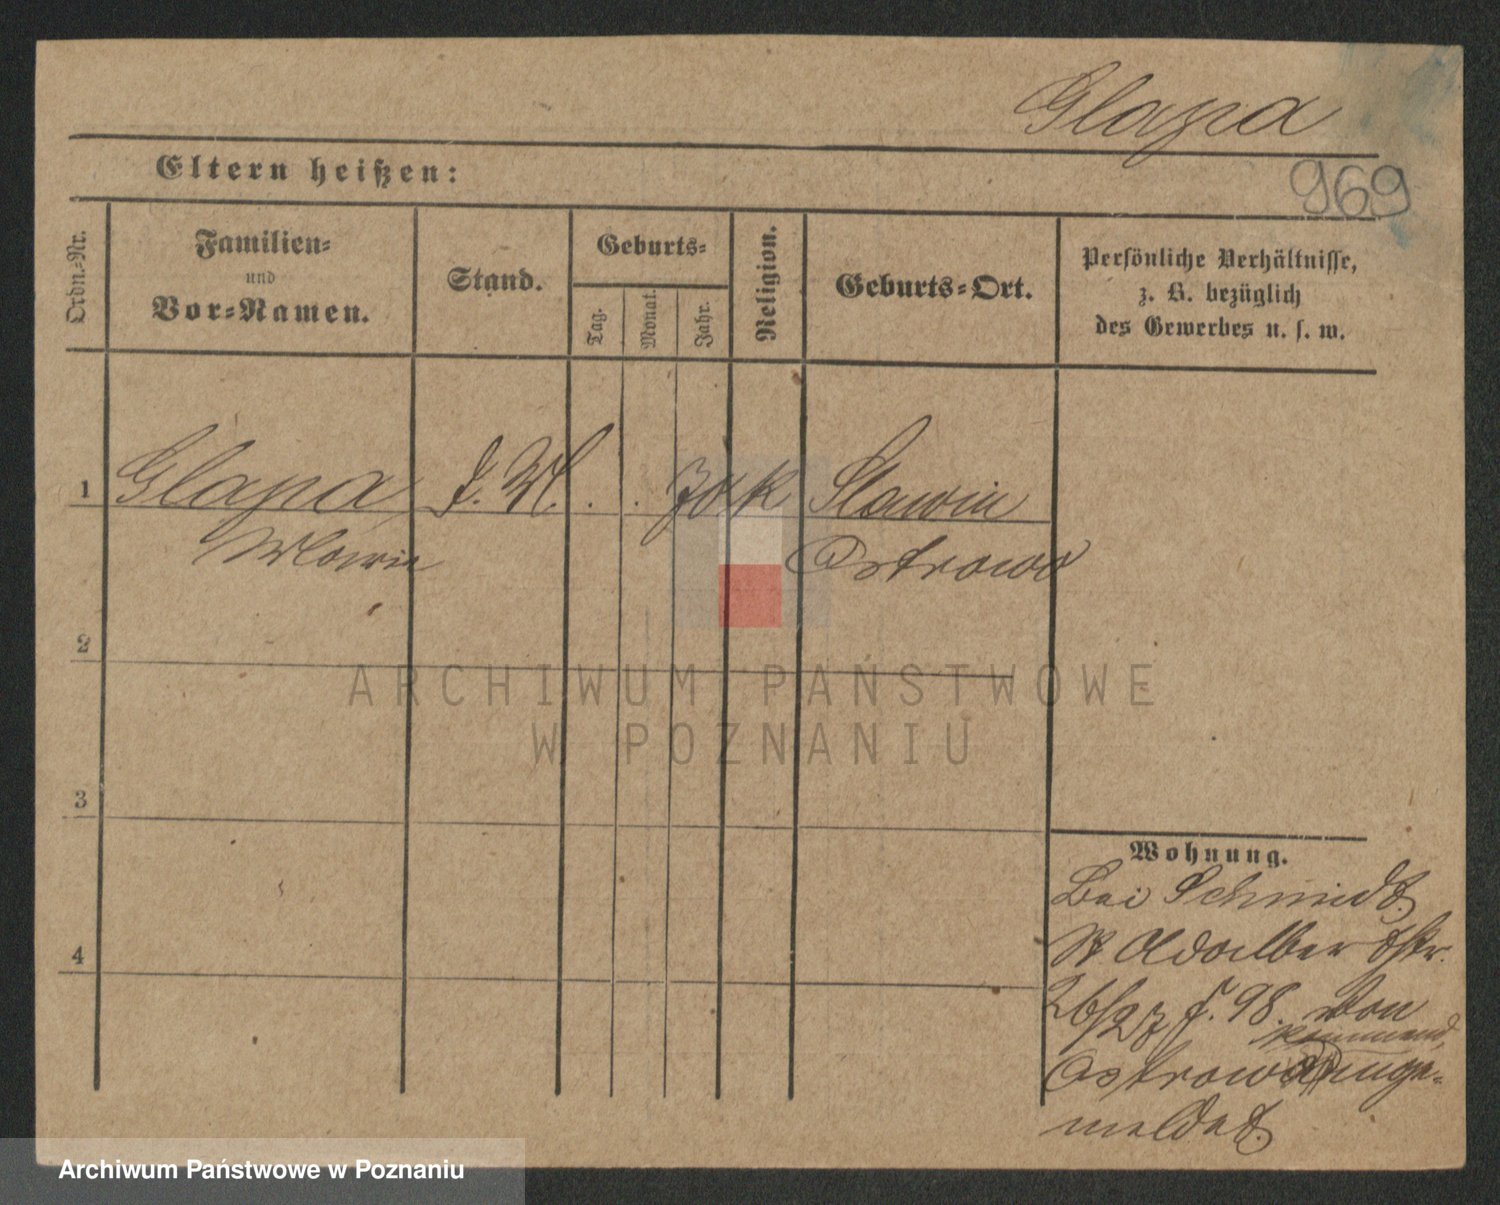 Glapa
969
Eltern heißen:
Ordn.-Nr.
Familien-
und
Vor-Namen.
Stand.
Geburts-
Tag.
Monat.
Jahr.
Religion.
Geburts-Ort.
Persönliche Verhältnisse,
z. B. bezüglich
des Gewerbes u. s. w.
1
Glapa
k
Slawin
Ostrowo
2
3
4
ARCHIWUM PAŃSTWOWE
W POZNANIU
Wohnung.
Bei Schmidt
St Adalber
26/27 98. von
Ostrowo
meldet.
Archiwum Państwowe w Poznaniu